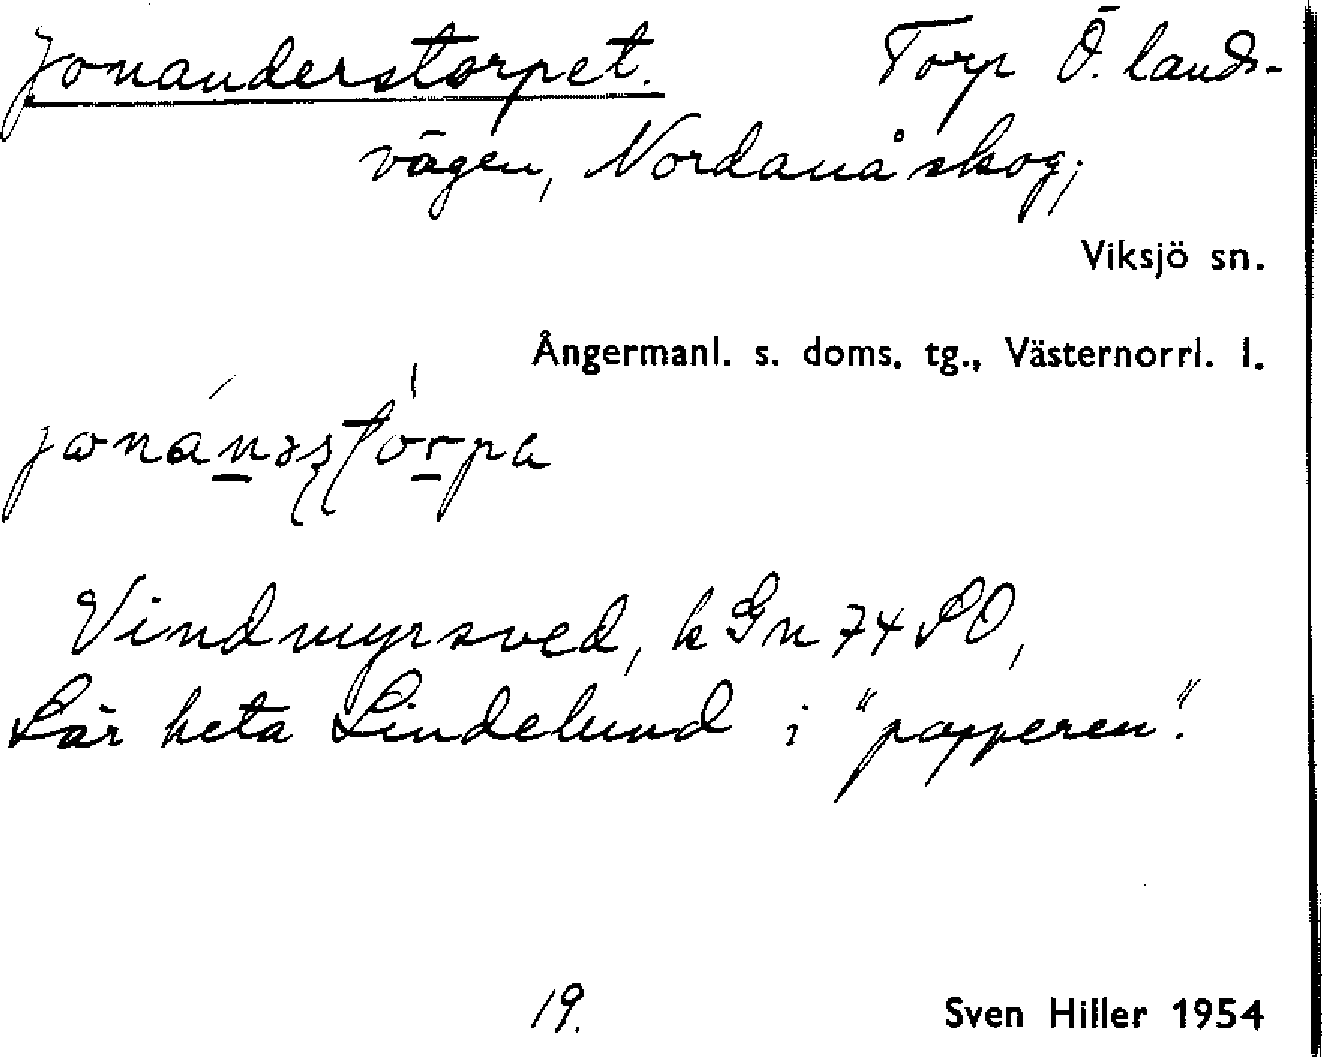 Jonanderstorpet. Torp Ö. lands-
vägen, Nordanå skog;
Viksjö sn.
Ångermanl. s. doms. tg., Västernorrl. l.
Vindmyrsved, k Gn 74 SO,
Lär heta Lindelund i "papperen".
19. Sven Hiller 1954